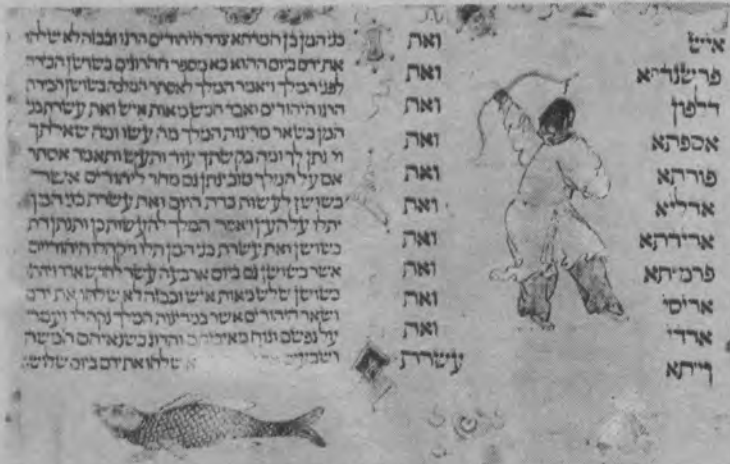 איש ואת
פרשנדתא ואת
דלפון ואת
אספתא ואת
פורתא ואת
אדליא ואת
ארידתא ואת
פרמשתא ואת
אריסי ואת
ארדי ואת
ויזתא עשרת
בני המן בן המדתא צרר היהודים הרגו ובבזה לא שלחו
את ידם ביום ההוא בא מספר ההרוגים בשושן הבירה
לפני המלך ויאמר המלך לאסתר המלכה בשושן הבירה
הרגו היהודים ואבד חמש מאות איש ואת עשרת בני
המן בשאר מדינות המלך מה עשו ומה שאלתך
וינתן לך ומה בקשתך עוד ותעש ותאמר אסתר
אם על המלך טוב ינתן גם מחר ליהודים אשר
בשושן לעשות כדת היום ואת עשרת בני המן
יתלו על העץ ויאמר המלך להעשות כן ותנתן דת
בשושן ואת עשרת בני המן תלו ויקהלו היהודיים
אשר בשושן גם ביום ארבעה עשר לחדש אדר
בשושן שלש מאות איש ובבזה לא שלחו את ידם
ושאר היהודים אשר במדינות המלך נקהלו ועמד
על נפשם ונוח מאיביהם והרוג בשנאיהם חמשה
ושבעים שלחו את ידם ביום